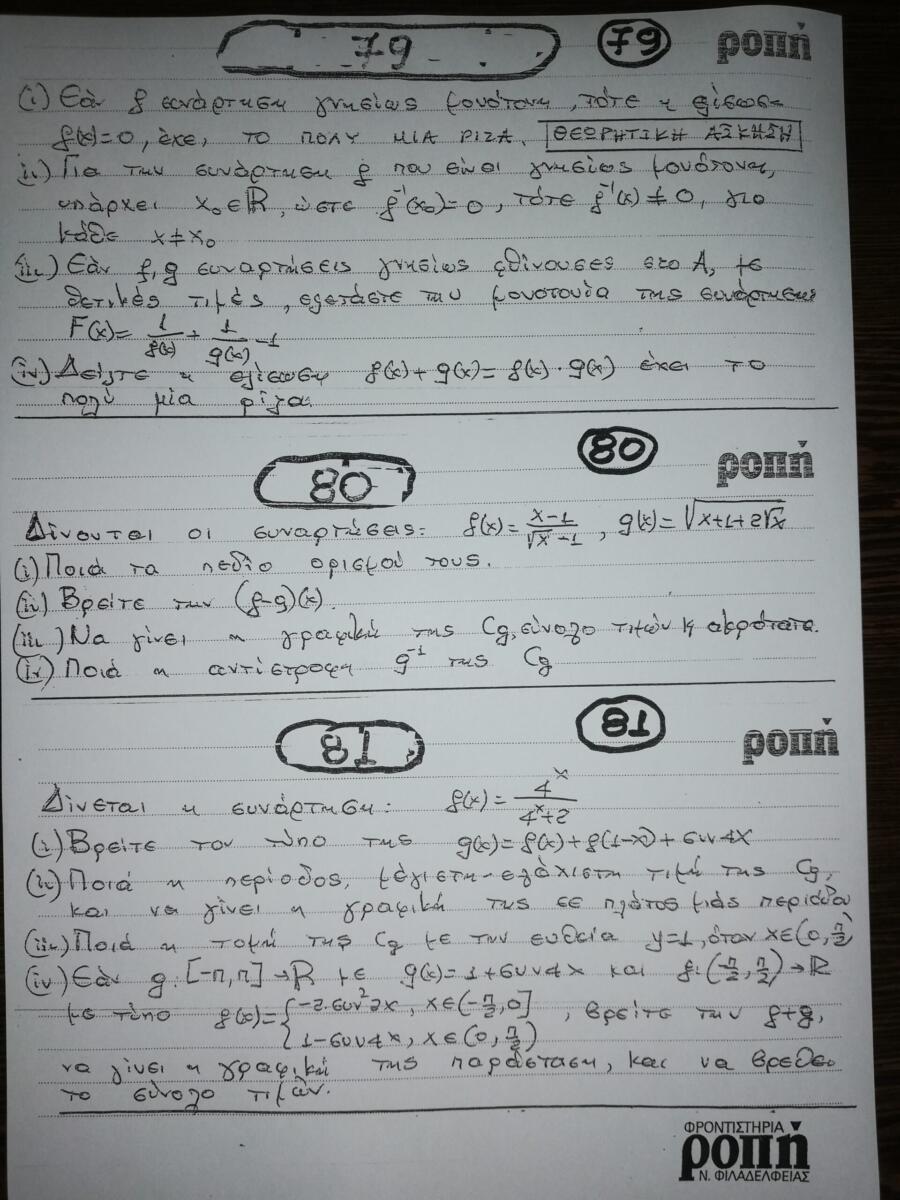 79 79 ροπή
(i) Εάν f συνάρτηση γνησίως μονότονη, τότε η εξίσωση
f(x)=0, έχει ΤΟ ΠΟΛΥ ΜΙΑ ΡΙΖΑ. ΘΕΩΡΗΤΙΚΗ ΑΣΚΗΣΗ
ii) Για την συνάρτηση f που είναι γνησίως μονότονη,
υπάρχει x₀∈ℝ, ώστε f⁻¹(x₀)=0, τότε f⁻¹(x)≠0, για
κάθε x≠x₀
iii) Εάν f, g συναρτήσεις γνησίως φθίνουσες στο Α, με
θετικές τιμές, εξετάστε την μονοτονία της συνάρτησης
F(x)= 1/f(x) + 1/g(x) -1
(iv) Δείξτε η εξίσωση f(x)+g(x)=f(x)·g(x) έχει το
πολύ μία ρίζα.
80 80 ροπή
Δίνονται οι συναρτήσεις: f(x)= x-1/√x-1, g(x)=√(x+1+2√x)
(i) Ποιά τα πεδίο ορισμού τους.
(ii) Βρείτε την (f-g)(x).
(iii) Να γίνει η γραφική της Cg, σύνολο τιμών ή ακρότατα.
(iv) Ποιά η αντίστροφη g⁻¹ της Cg
81 81 ροπή
Δίνεται η συνάρτηση: f(x)= 4ˣ/4ˣ+2
(i) Βρείτε τον τύπο της g(x)=f(x)+f(1-x)+συν4x
(ii) Ποιά η περίοδος, μέγιστη-ελάχιστη τιμή της Cg,
και να γίνει η γραφική της σε πλάτος μιάς περιόδου
(iii) Ποιά η τομή της Cg με την ευθεία y=1, όταν x∈(0,π/2)
(iv) Εάν g:[-π,π]→ℝ με g(x)=1+συν4x και f:(-π/2,π/2)→ℝ
με τύπο f(x)={-2συν²2x, x∈(-π/2,0] , βρείτε την f+g,
{1-συν4x, x∈(0,π/2)
να γίνει η γραφική της παράσταση, και να βρεθεί
το σύνολο τιμών.
ΦΡΟΝΤΙΣΤΗΡΙΑ
ροπή
Ν. ΦΙΛΑΔΕΛΦΕΙΑΣ